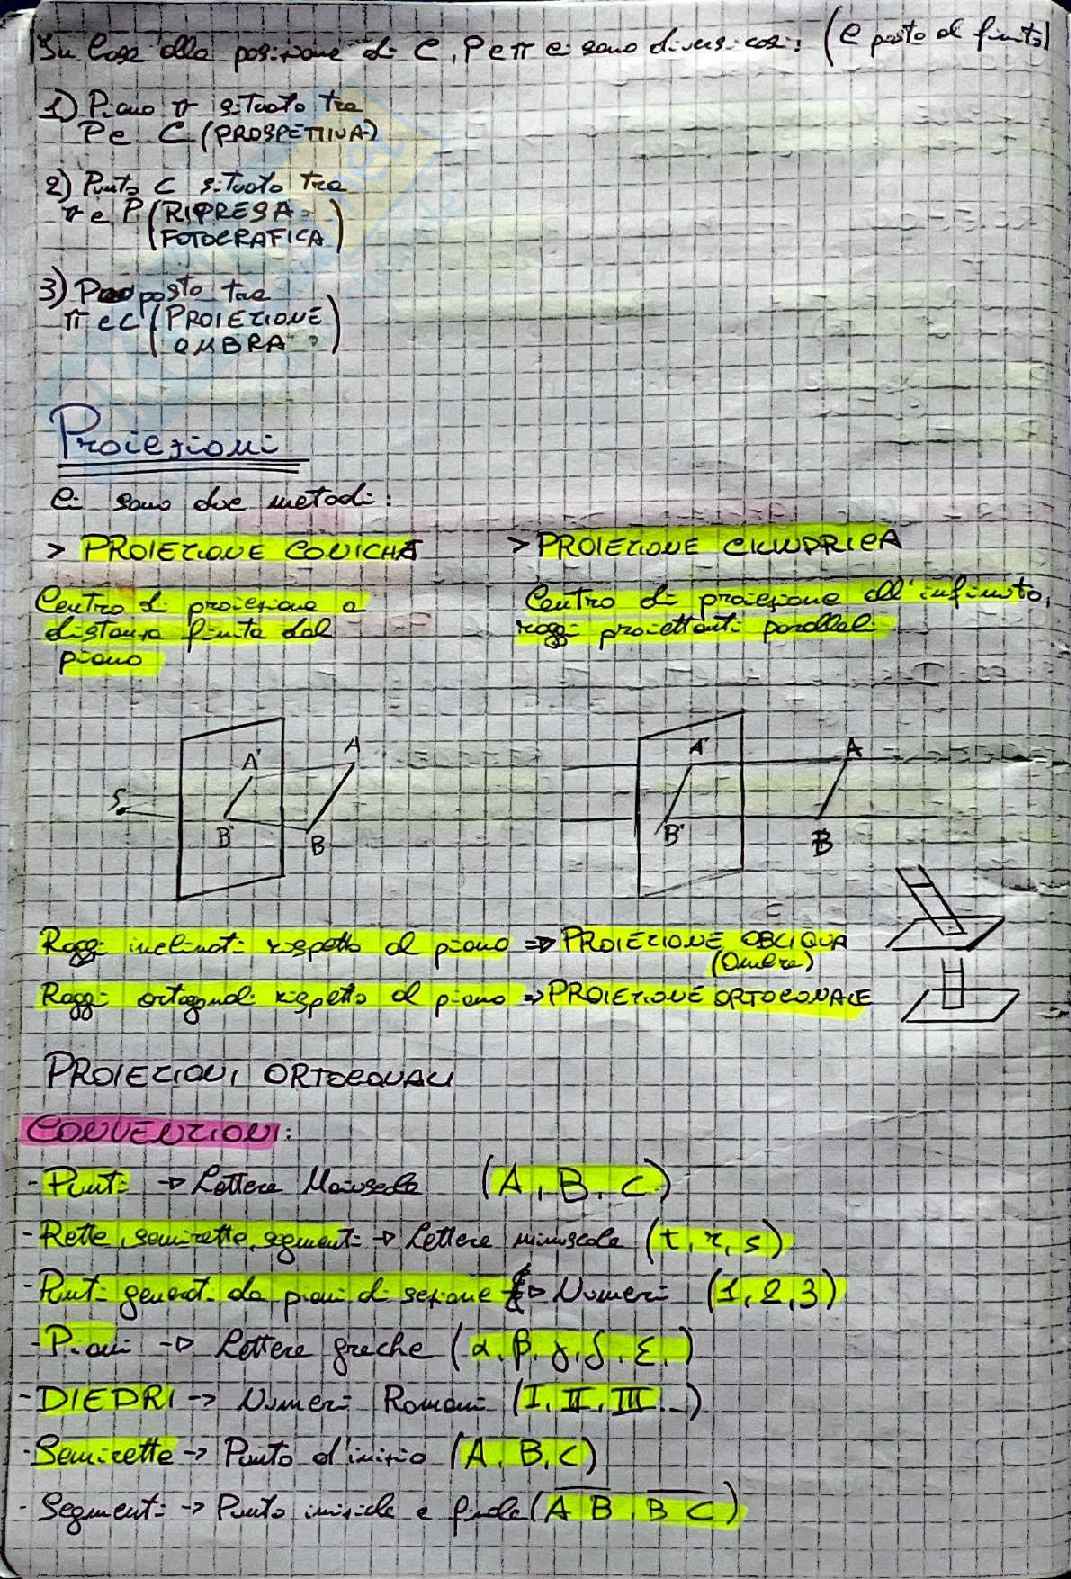 In base alla posizione di C, P e π ci sono diversi casi: (C posto al finito)
1) Piano π situato tra
P e C (PROSPETTIVA)
2) Punto C situato tra
π e P (RIPRESA
FOTOGRAFICA)
3) P posto tra
π e C (PROIEZIONE
OMBRA)
Proiezioni
Ci sono due metodi:
> PROIEZIONE CONICHE
> PROIEZIONE CILINDRICA
Centro di proiezione a
distanza finita dal
piano
Centro di proiezione all'infinito,
raggi proiettanti paralleli
A' A
S
B' B
A' A
B' B
Raggi inclinati rispetto al piano => PROIEZIONE OBLIQUA
(Ombre)
Raggi ortogonali rispetto al piano => PROIEZIONE ORTOGONALE
PROIEZIONI ORTOGONALI
CONVENZIONI:
- Punti -> Lettere Maiuscole (A, B, C)
- Rette, semirette, segmenti -> Lettere minuscole (t, r, s)
- Punti generati da piani di sezione -> Numeri (1, 2, 3)
- Piani -> Lettere greche (α, β, γ, δ, ε,)
- DIEDRI -> Numeri Romani (I, II, III...)
- Semirette -> Punto d'inizio (A, B, C)
- Segmenti -> Punto iniziale e finale (A̅B̅ B̅C̅)